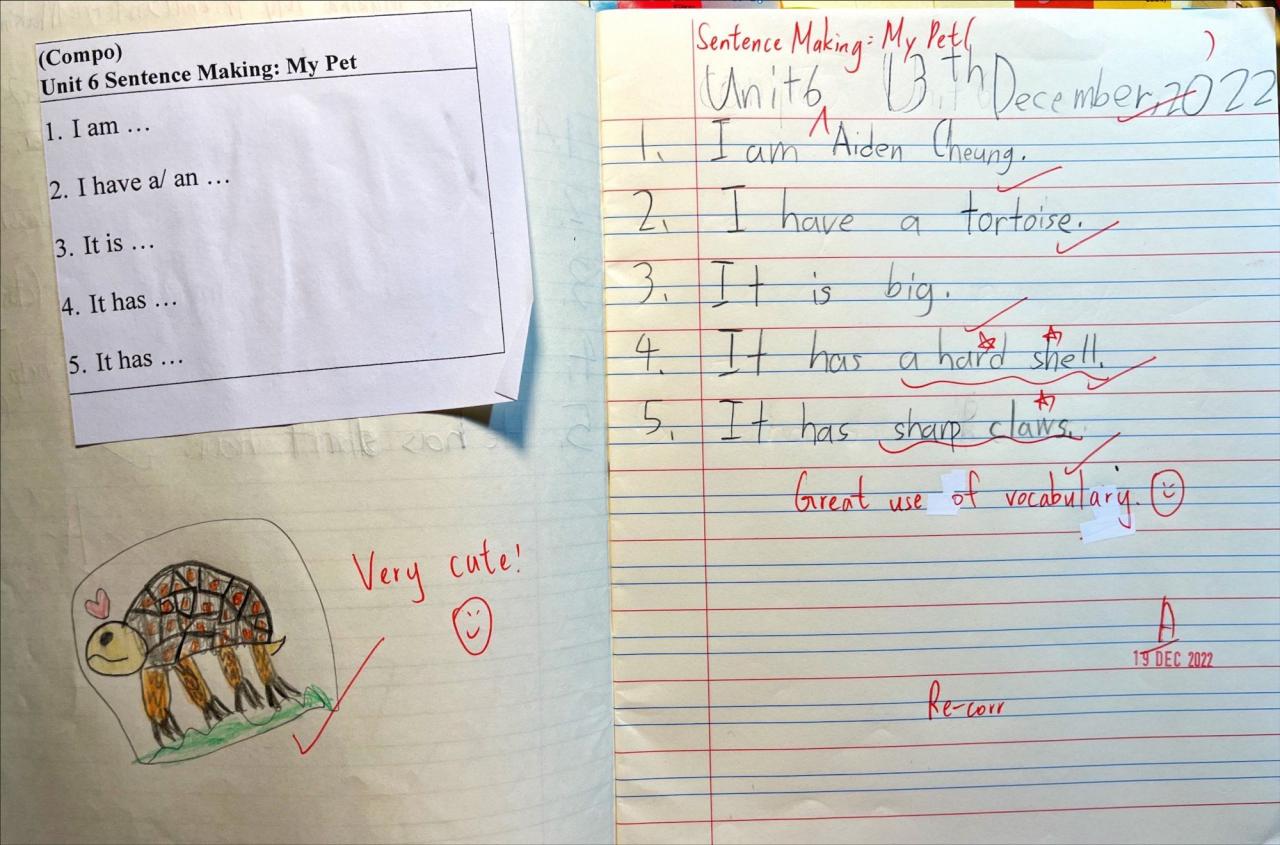 (Compo)
Unit 6 Sentence Making: My Pet
1. I am …
2. I have a/ an …
3. It is …
4. It has …
5. It has …
Very cute!
Sentence Making: My Pet( )
Unit6 13th December, 2022
1. I am Aiden Cheung.
2. I have a tortoise.
3. It is big.
4. It has a hard shell.
5. It has sharp claws.
Great use of vocabulary.
A
19 DEC 2022
Re-corr